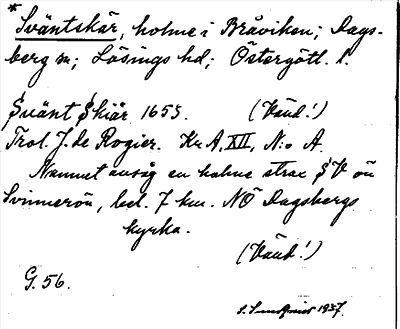 * Sväntskär, holme i Bråviken; Dags-
berg sn; Lösings hd; Östergötl. l.
Suänt Skiär 1655. (Vänd!)
Trol. J. de Rogier. Kr A, XII, N:o A.
Namnet avsåg en holme strax SV ön
Svinnerön, bel. 7 km. NÖ Dagsbergs
kyrka.
(Vänd!)
G. 56.
1937.